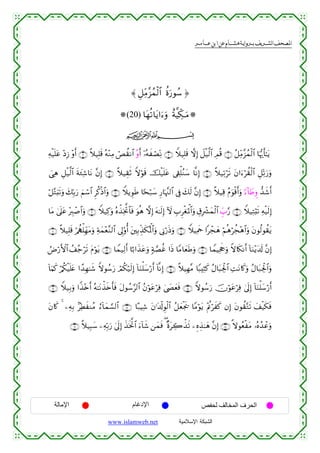 المصحف الشريف برواية هشام عن ابن عامر
﴿ سُورَةُ ٱلْمُزَّمِّلِ ﴾
* مَكِّيَّةٌ وَءَايَاتُهَا (20) *
بِسْمِ ٱللَّهِ ٱلرَّحْمَٰنِ ٱلرَّحِيمِ
يَٰٓأَيُّهَا ٱلْمُزَّمِّلُ ۝ قُمِ ٱلَّيْلَ إِلَّا قَلِيلًا ۝ نِّصْفَهُۥٓ أَوُ ٱنقُصْ مِنْهُ قَلِيلًا ۝ أَوْ زِدْ عَلَيْهِ
وَرَتِّلِ ٱلْقُرْءَانَ تَرْتِيلًا ۝ إِنَّا سَنُلْقِى عَلَيْكَ قَوْلًا ثَقِيلًا ۝ إِنَّ نَاشِئَةَ ٱلَّيْلِ هِىَ
أَشَدُّ وِطَآءً وَأَقْوَمُ قِيلًا ۝ إِنَّ لَكَ فِى ٱلنَّهَارِ سَبْحًا طَوِيلًا ۝ وَٱذْكُرِ ٱسْمَ رَبِّكَ وَتَبَتَّلْ
إِلَيْهِ تَبْتِيلًا ۝ رَبِّ ٱلْمَشْرِقِ وَٱلْمَغْرِبِ لَآ إِلَٰهَ إِلَّا هُوَ فَٱتَّخِذْهُ وَكِيلًا ۝ وَٱصْبِرْ عَلَىٰ مَا
يَقُولُونَ وَٱهْجُرْهُمْ هَجْرًا جَمِيلًا ۝ وَذَرْنِى وَٱلْمُكَذِّبِينَ أُو۟لِى ٱلنَّعْمَةِ وَمَهِّلْهُمْ قَلِيلًا ۝
إِنَّ لَدَيْنَآ أَنكَالًا وَجَحِيمًا ۝ وَطَعَامًا ذَا غُصَّةٍ وَعَذَابًا أَلِيمًا ۝ يَوْمَ تَرْجُفُ ٱلْأَرْضُ
وَٱلْجِبَالُ وَكَانَتِ ٱلْجِبَالُ كَثِيبًا مَّهِيلًا ۝ إِنَّآ أَرْسَلْنَآ إِلَيْكُمْ رَسُولًا شَٰهِدًا عَلَيْكُمْ كَمَآ
أَرْسَلْنَآ إِلَىٰ فِرْعَوْنَ رَسُولًا ۝ فَعَصَىٰ فِرْعَوْنُ ٱلرَّسُولَ فَأَخَذْنَٰهُ أَخْذًا وَبِيلًا ۝
فَكَيْفَ تَتَّقُونَ إِن كَفَرْتُمْ يَوْمًا يَجْعَلُ ٱلْوِلْدَٰنَ شِيبًا ۝ ٱلسَّمَآءُ مُنفَطِرٌۢ بِهِۦ ۚ كَانَ
وَعْدُهُۥ مَفْعُولًا ۝ إِنَّ هَٰذِهِۦ تَذْكِرَةٌ ۖ فَمَن شَآءَ ٱتَّخَذَ إِلَىٰ رَبِّهِۦ سَبِيلًا ۝
الحرف المخالف لحفص الإدغام الإمالة
الشبكة الإسلامية www.islamweb.net